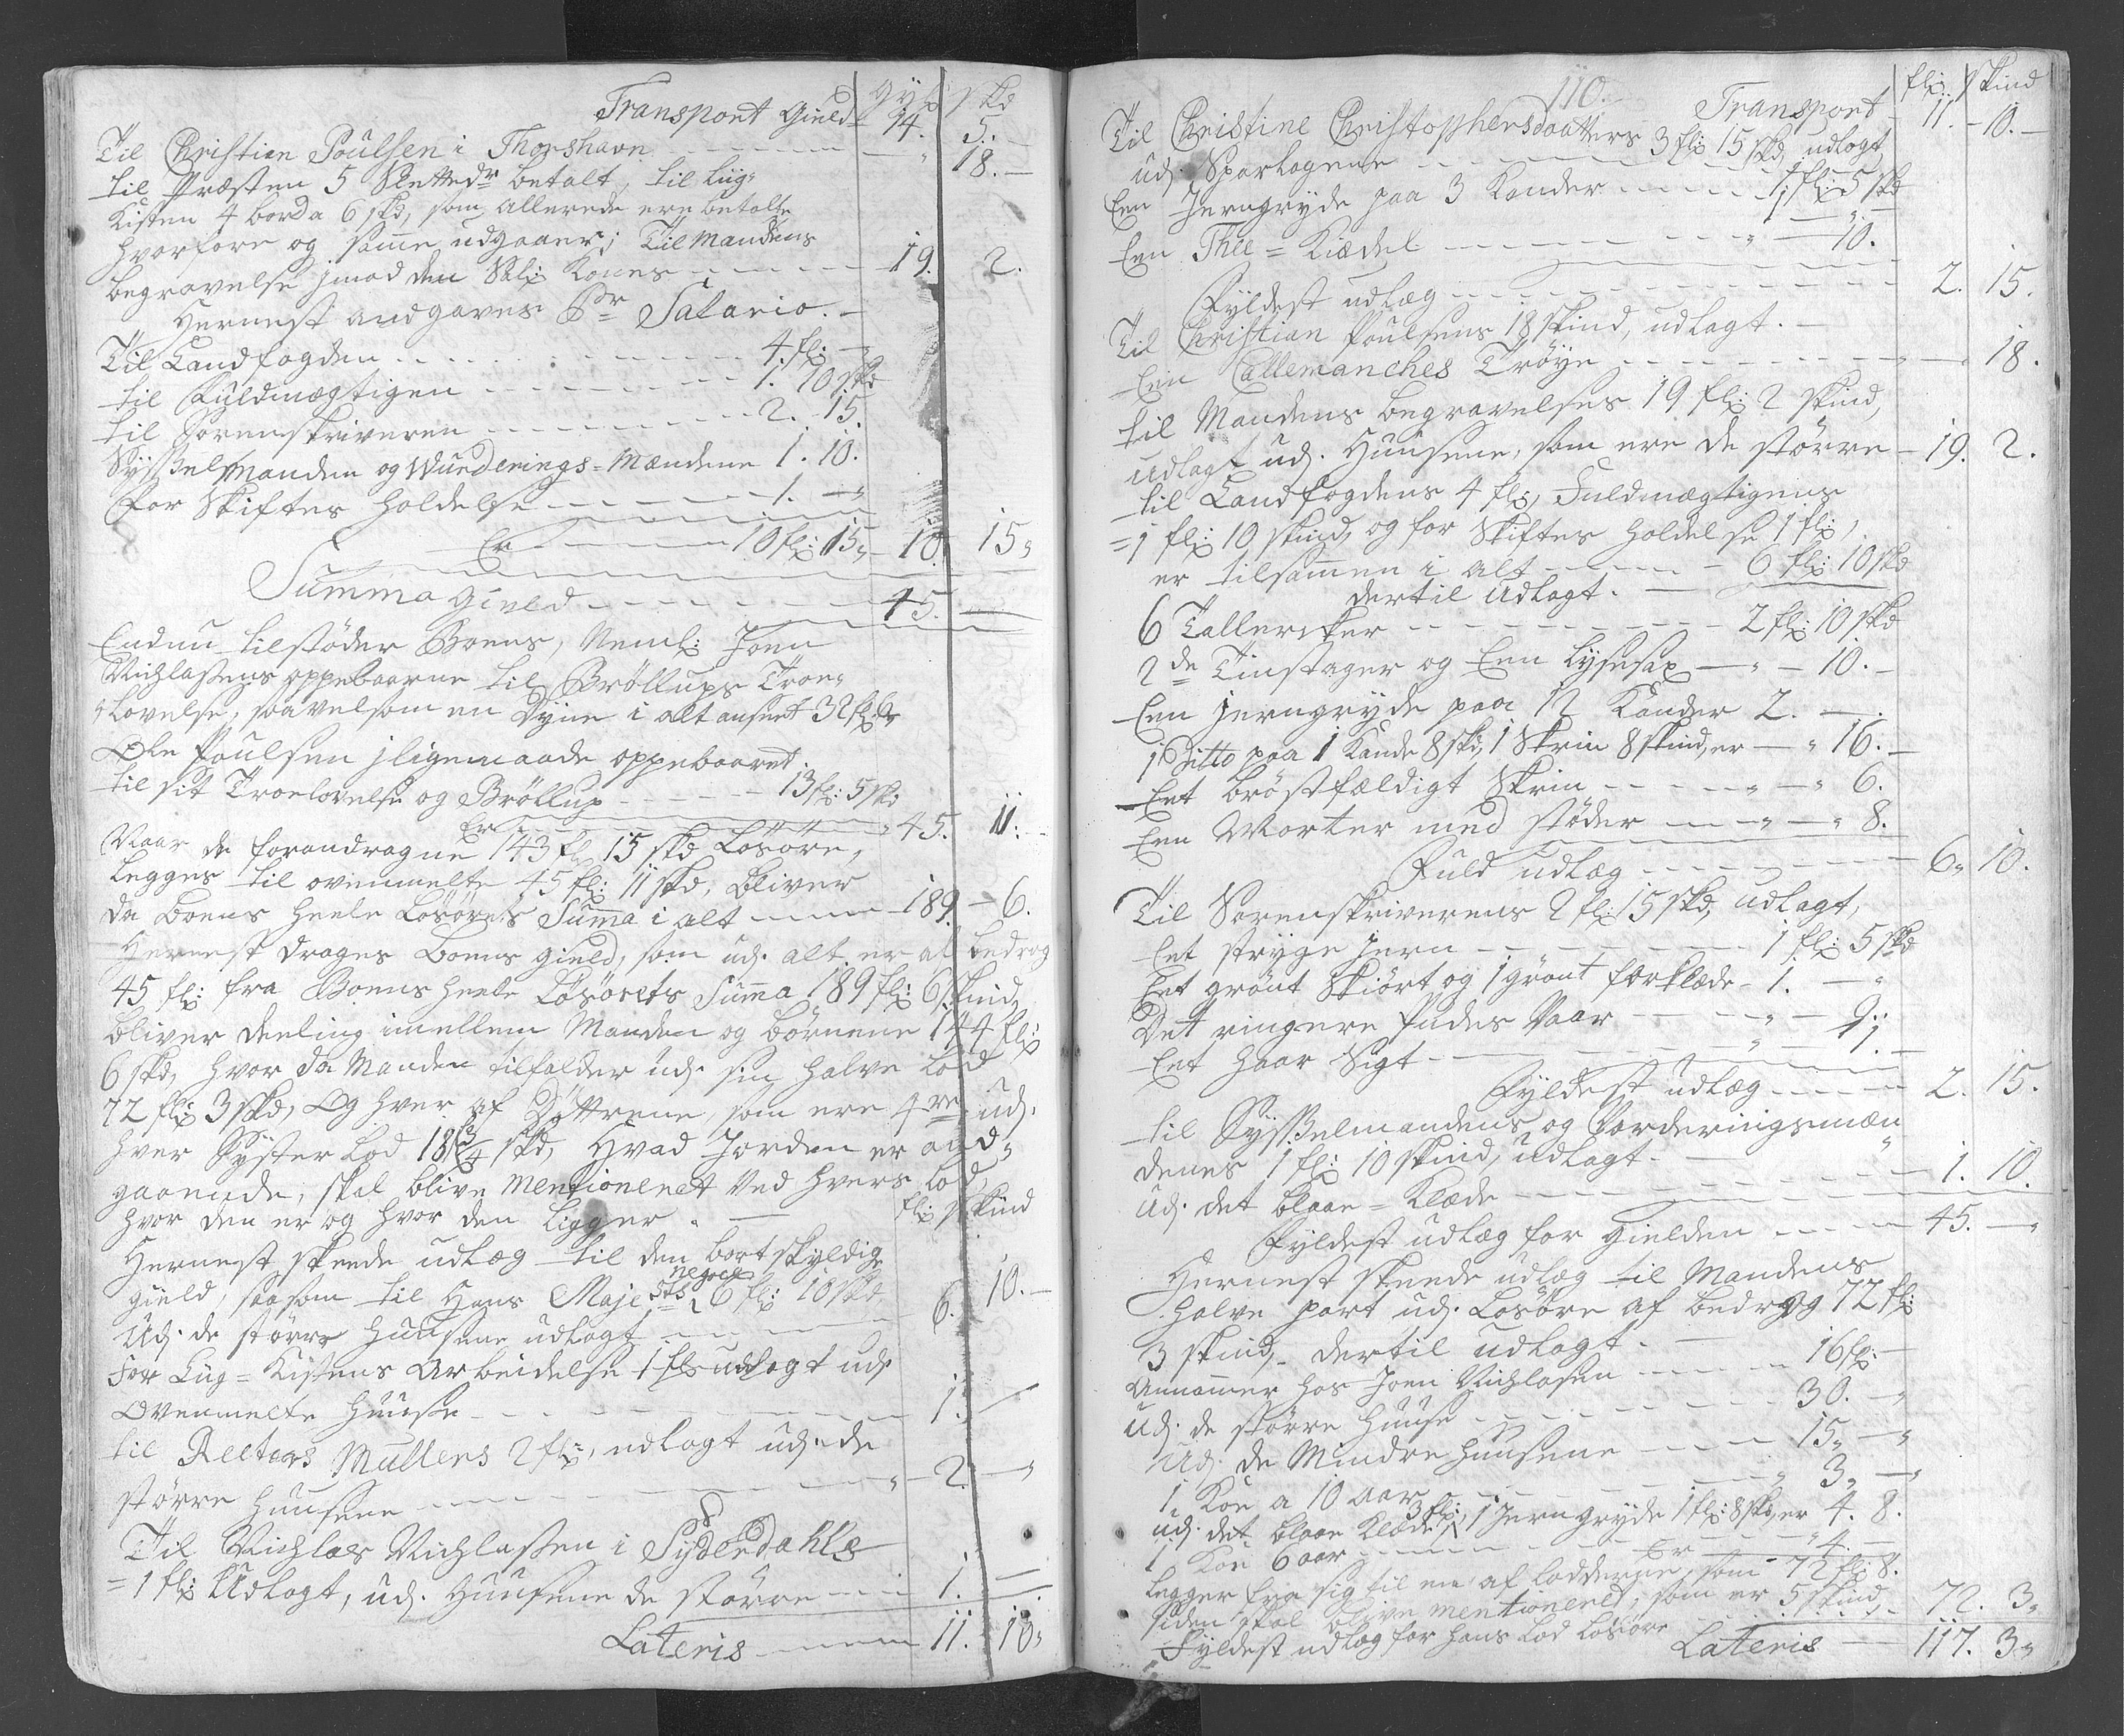 Transport Gield gyl: skd
14. 5.
Til Christian Poulsen i Thorshavn - - - 18. -
til Præsten 5 Slettedr betalt, til Liig-
Kisten 4 bord a 6 skd, som allerede ere betalte
hvorfore og samme udgaaer; Til Mandens
begravelse jmod den Sal: Kones - - - 19. 2.
Hernest andgaves Pr Salario. -
Til Landfogden - - - 4. fl: -
til Fuldmægtigen - - - 1. 10 skd
til Sorenskriveren - - - 2. 15.
Sysselmanden og Wurderings-Mændene 1. 10.
For Skiftes Holdelse - - - 1. -
Er - - - 10 fl: 15 - 10. 15
Summa Gield - - - 45. -
Endnu tilstøder Boens, Neml: Joen
Nichlasens oppebaarne til Brøllups Troe-
lovelse, saavelsom en Dyne i alt anseet 32 fl: 6
Ole Poulsen jligemaade oppebaaret
til sit Troelovelse og Brøllup - - - 13 fl: 5 skd
Er - - - 45. 11. -
Naar de forandragne 143 fl 15 skd Løsøre,
Legges til ovenmelte 45 fl: 11 skd, bliver
da boens heele Løsørets Summa i alt - - - 189. - 6.
Hernest drages boens gield, som udj. alt er af bedrog
45 fl: fra Boens heele Løsørets Summa 189 fl: 6 skind,
bliver deeling imellem Manden og børnene 144 fl:
6 skd, hvor da Manden tilfalder udj. sin halve Lod
72 fl: 3 skd, Og hver af Døttrene, som ere 4re udj.
hver Syster Lod 18 fl 3/4 skd, Hvad Jorden er and-
gaaende, skal blive Mentioneret ved hvers lod,
hvor den er og hvor den ligger. - fl: skind
Hernest skeede udlæg til den bortskyldige
gield, saasom til Hans Majests negoce 6 fl: 10 skd
Udj. de større Huusene udlagt - - - 6. 10. -
For Liig-Kistens Arbeidelse 1 fl: udlagt udj
Ovenmelte Huuse - - - 1. -
til Reeters Mullers 2 fl:, udlagt udj. de
større Huusene - - - 2. -
Til Nichlas Nichlasen i Sydredahls
= 1 fl: Udlagt, udj. Huusene de større - - - 1. -
Lateris - - - 11. 10
110. Transport fl: skind
11. - 10. -
Til Christine Christophersdaatters 3 fl: 15 skd, udlagt
udj. Sparlagene - - - 1 fl: 5 skd
Een Jerngryde paa 3 Kander - - - 1. - " -
Een Thee-Kiædel - - - " - 10.
Fyldest udlæg - - - 2. 15.
Til Christian Poulsens 18 skind, udlagt. -
Een Callemanches Trøye - - - 18.
til Mandens begravelses 19 fl: 2 skind,
Udlagt udj. Huusene, som ere de større - 19. 2.
til Landfogdens 4 fl:, Fuldmægtigens
= 1 fl: 10 skind, og for Skiftes Holdelse 1 fl:,
er tilsammen i alt - - - 6 fl: 10 skd
dertil Udlagt. -
6 Tallerker - - - 2 fl: 10 skd
2de Tinstager og Een Lysesax - " - 10. -
Een Jerngryde paa 12 Kander 2. -
1 Ditto paa 1 Kande 8 skd, 1 Skrin 8 skind, er - " 16. -
Eet brøstfældigt Skrin - - - " - " 6.
Een Morter med støder - - - " - " 8.
Fuld udlæg - - - 6. 10.
Til Sorenskriverens 2 fl: 15 skd, udlagt,
Eet stryge Jern - - - 1 fl: 5 skd
Eet grønt Skiørt og 1 grønt forklæde - 1. - "
Det ringere Pudes Vaar - - - " - 9.
Eet Haar Sigt - - - " - 1. -
Fyldest udlæg - - - 2. 15.
til Sysselmandens og Vorderingsmæn
denes 1 fl: 10 skind, udlagt. -
Udj. det blaae-Klæde - - - 1. 10.
Fyldest udlæg for gielden - - - 45. - "
Hernest skeede udlæg til Mandens
halve part udj. Løsøre af bedrog 72 fl:
3 skind, dertil udlagt. -
Annammer hos Joen Nichlasen - - - 16 fl: -
Udj. de større Huuse - - - 30. - "
Udj. de Mindre Huusene - - - 15. - "
1 Koe a 10 aar - - - 3. - "
udj. det blaae Klæde 3 fl:, 1 Jerngryde 1 fl: 8 skd, er 4. 8.
1 Koe 6 aar - - - " 4. -
Er - - - 72 fl: 8.
Legger fra sig til en af lodderne, som
siden skal blive mentionered, som er 5 skind, - 72. 3
Fyldest udlæg for hans Lod Løsøre
Lateris - 117. 3